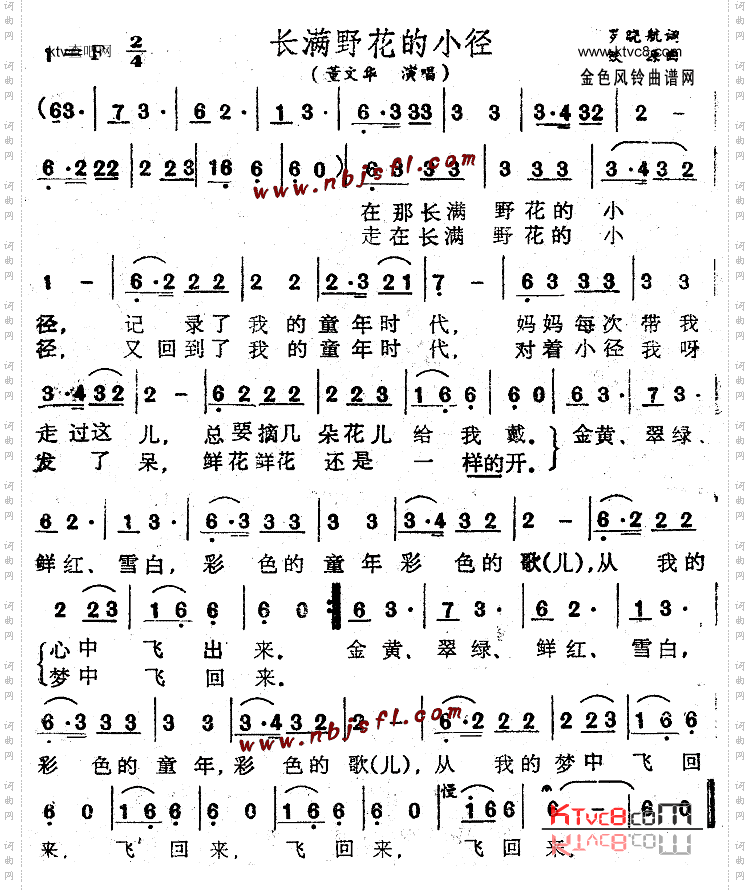 长满野花的小径
1=F 2/4
(董文华 演唱)
罗晓航词
www.ktvc8.com
金色风铃曲谱网
(63· | 7 3· | 6 2· | 1 3· | 6·3 33 | 3 3 | 3·4 32 | 2 -
6·2 22 | 2 23 | 16 6 | 6 0) | 6·3 33 | 3 33 | 3·4 32
www.nbjsfl.com
在那长满 野花的 小
走在长满 野花的 小
1 - | 6·2 22 | 2 2 | 2·3 21 | 7 - | 63 33 | 3 3
径, 记 录了我的童年时 代, 妈妈每次带我
径, 又回到了我的童年时 代, 对着小径我呀
3·4 32 | 2 - | 62 22 | 2 23 | 1 66 | 6 0 | 6 3· | 7 3·
走过这 儿, 总要摘几 朵花儿 给 我 戴。金黄、翠绿、
发 了 呆, 鲜花鲜花 还是 一 样的开。
6 2· | 1 3· | 6·3 33 | 3 3 | 3·4 32 | 2 - | 6·2 22
鲜红、雪白, 彩 色的童年彩 色的歌(儿),从 我的
2 23 | 1 66 | 6 0 :| 6 3· | 7 3· | 6 2· | 1 3·
心中 飞 出 来。 金黄、翠绿、鲜红、雪白,
梦中 飞 回 来。
6·3 33 | 3 3 | 3·4 32 | 2 - | 6·2 22 | 2 23 | 1 66
www.nbjsfl.com
彩 色的童年,彩 色的歌(儿),从 我的梦中飞回
慢
6 0 | 1 66 | 6 0 | 1 66 | 6 0 | 1 66 | 6 - | 6 0
KTvc8.coM
来, 飞 回 来, 飞 回 来, 飞 回 来。